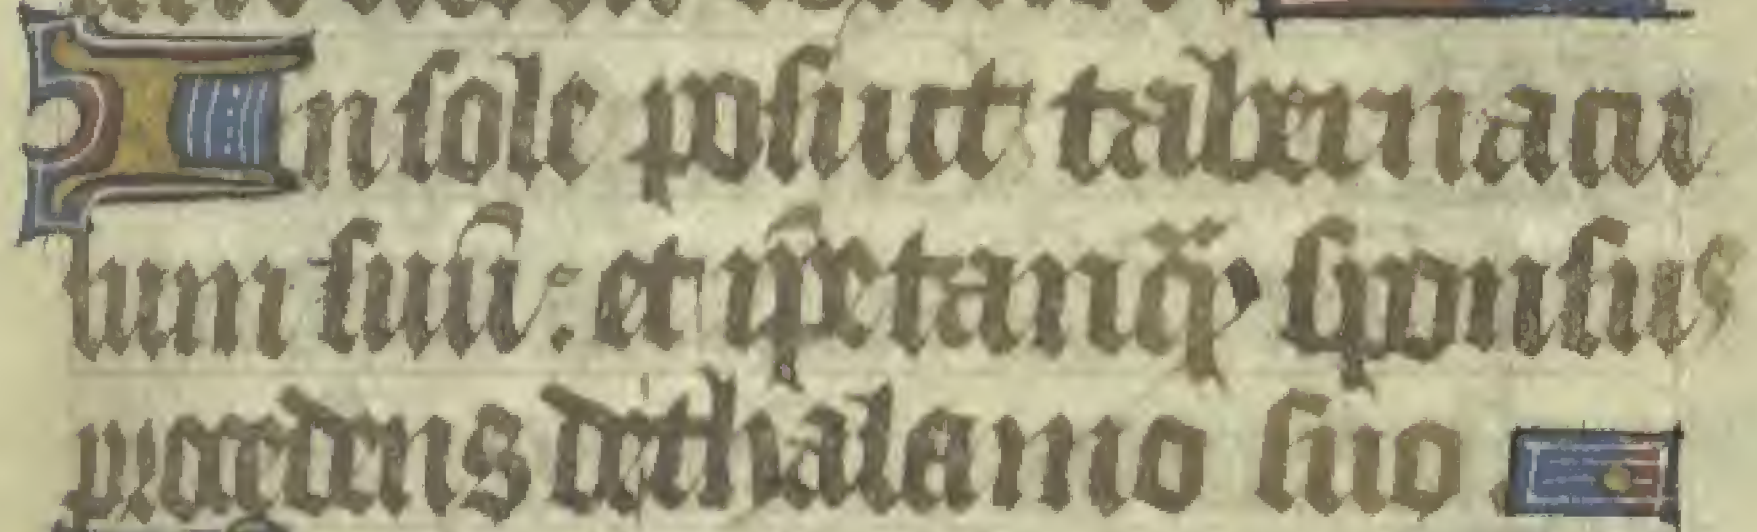 In sole posuit tabernacu
lum suū: et ip̄e tanq̄ sponsus
procedens de thalamo suo